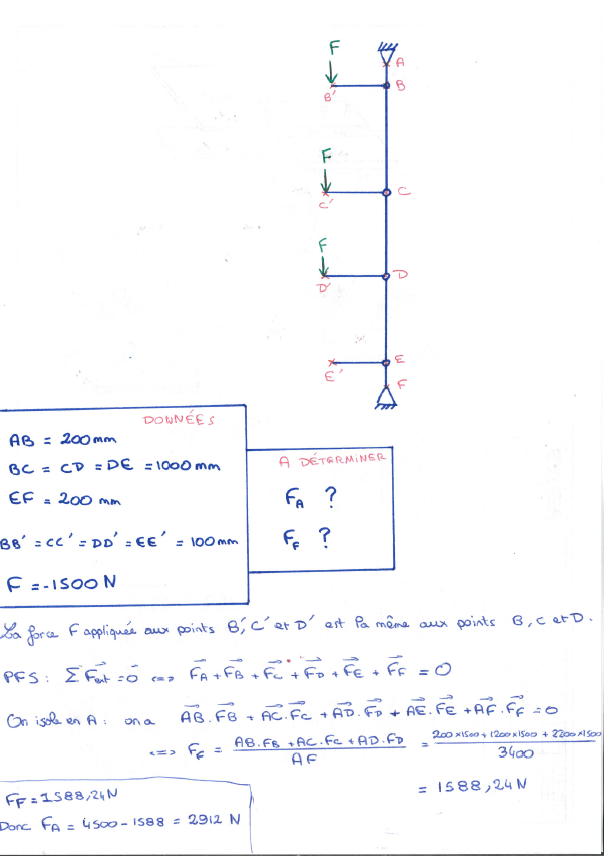 F
A
B'
B
F
C'
C
F
D'
D
E'
E
F
DONNÉES
AB = 200 mm
BC = CD = DE = 1000 mm
EF = 200 mm
BB' = CC' = DD' = EE' = 100 mm
F = -1500 N
A DÉTERMINER
F_A ?
F_F ?
La force F appliquée aux points B', C' et D' est la même aux points B, C et D.
PFS : Σ F⃗ext = 0⃗ <=> F⃗_A + F⃗_B + F⃗_C + F⃗_D + F⃗_E + F⃗_F = 0
On isole en A : on a A⃗B⃗.F⃗B⃗ + A⃗C⃗.F⃗c⃗ + A⃗D⃗.F⃗_D + A⃗E⃗.F⃗_E + A⃗F⃗.F⃗_F = 0
<=> F_F = (AB.F_B + AC.F_C + AD.F_D) / AF = (200×1500 + 1200×1500 + 2200×1500) / 3400
= 1588,24 N
F_F = 1588,24 N
Donc F_A = 4500 - 1588 = 2912 N